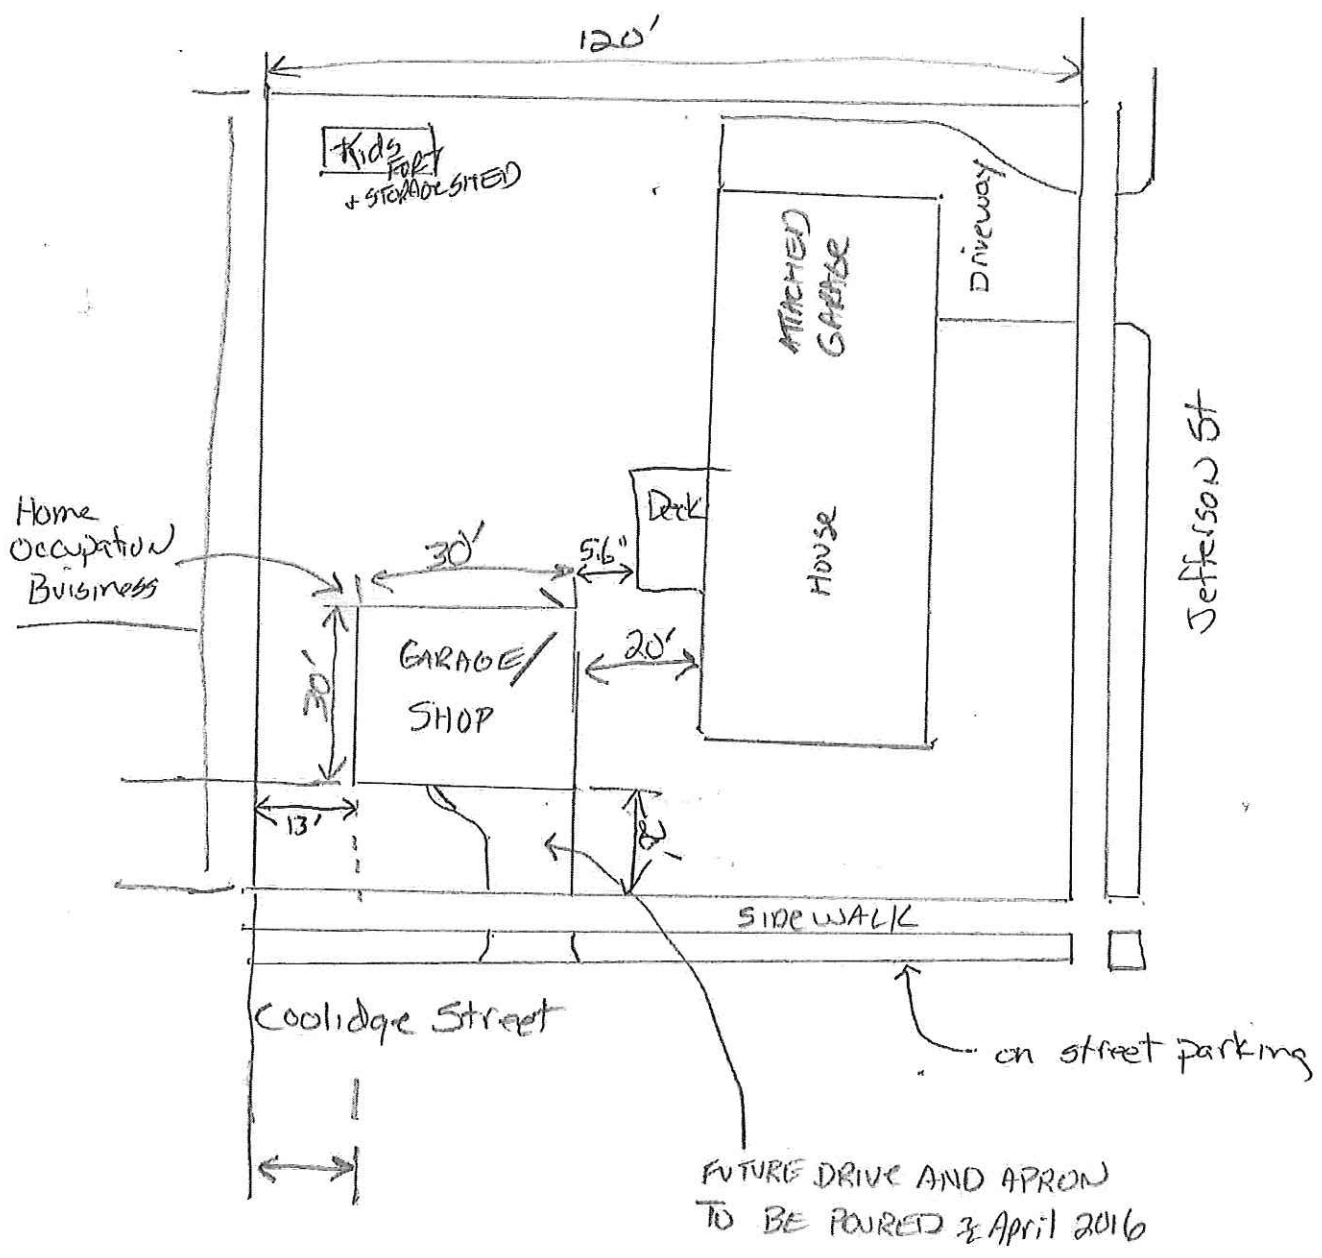 120'
Kids
FORT
+ STORAGE SHED
Driveway
ATTACHED
GARAGE
Jefferson St
Home
Occupation
Buisiness
30'
5.6"
Deck
House
30'
GARAGE/
SHOP
20'
13'
8'
SIDEWALK
Coolidge Street
on street parking
FUTURE DRIVE AND APRON
TO BE POURED April 2016